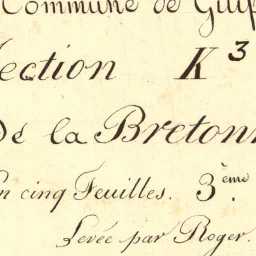 Commune de Guip
Section K 3
De la Breton
En cinq Feuilles. 3ème.
Levée par Roger.